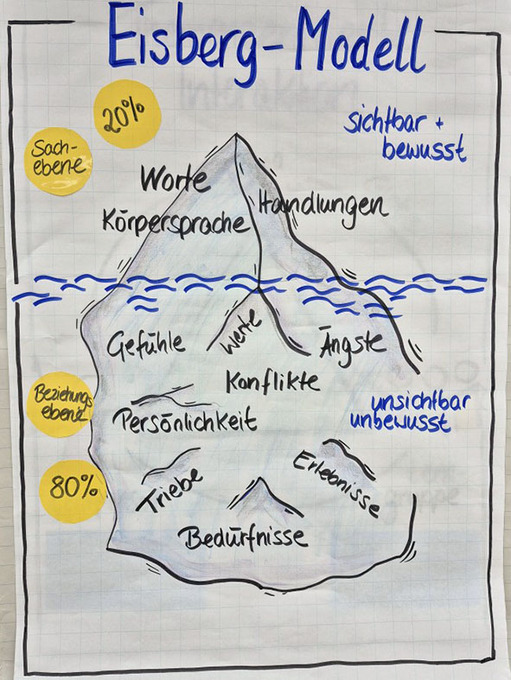 Eisberg-Modell
20%
sichtbar +
bewusst
Sach-
ebene
Worte
Handlungen
Körpersprache
Gefühle
Werte
Ängste
Konflikte
Beziehungs
ebene
unsichtbar
unbewusst
Persönlichkeit
80%
Triebe
Erlebnisse
Bedürfnisse